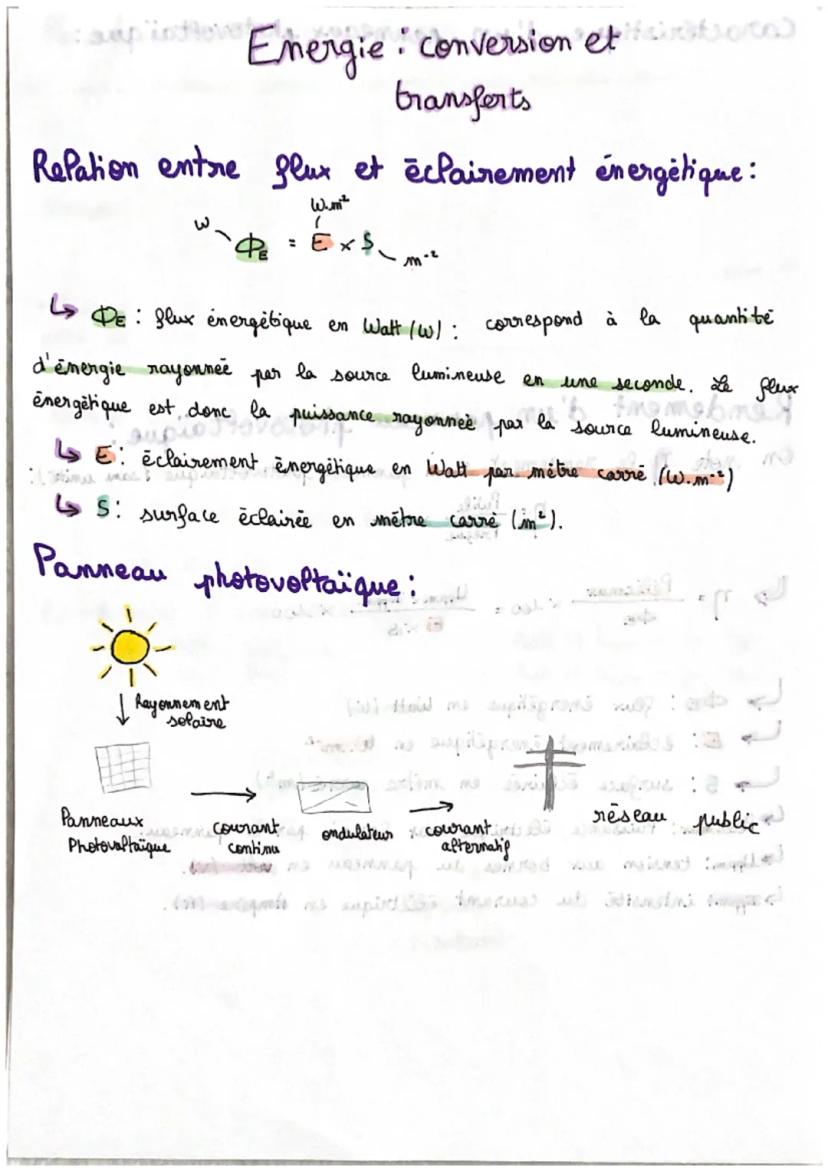 Energie : conversion et
transferts
Relation entre flux et éclairement énergétique :
W.m²
W
ΦE = E x S
m⁻²
↳ ΦE : flux énergétique en Watt (W) : correspond à la quantité
d'énergie rayonnée par la source lumineuse en une seconde. Le flux
énergétique est donc la puissance rayonnée par la source lumineuse.
↳ E : éclairement énergétique en Watt par mètre carré (W.m⁻²)
↳ S : surface éclairée en mètre carré (m²).
Panneau photovoltaïque :
↓ Rayonnement
solaire
Panneaux
Photovoltaïque
courant
continu
ondulateur
courant
alternatif
réseau public